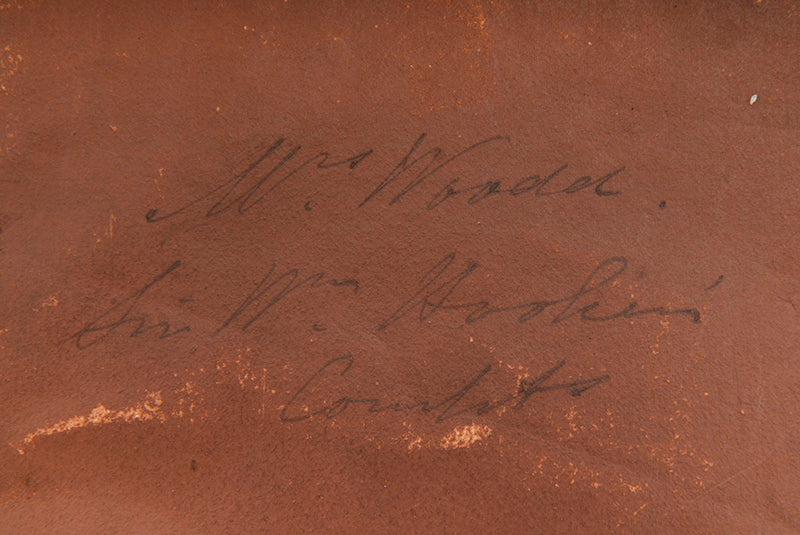 Mrs. Woodd.
Sir Wm Hooker's
Compts